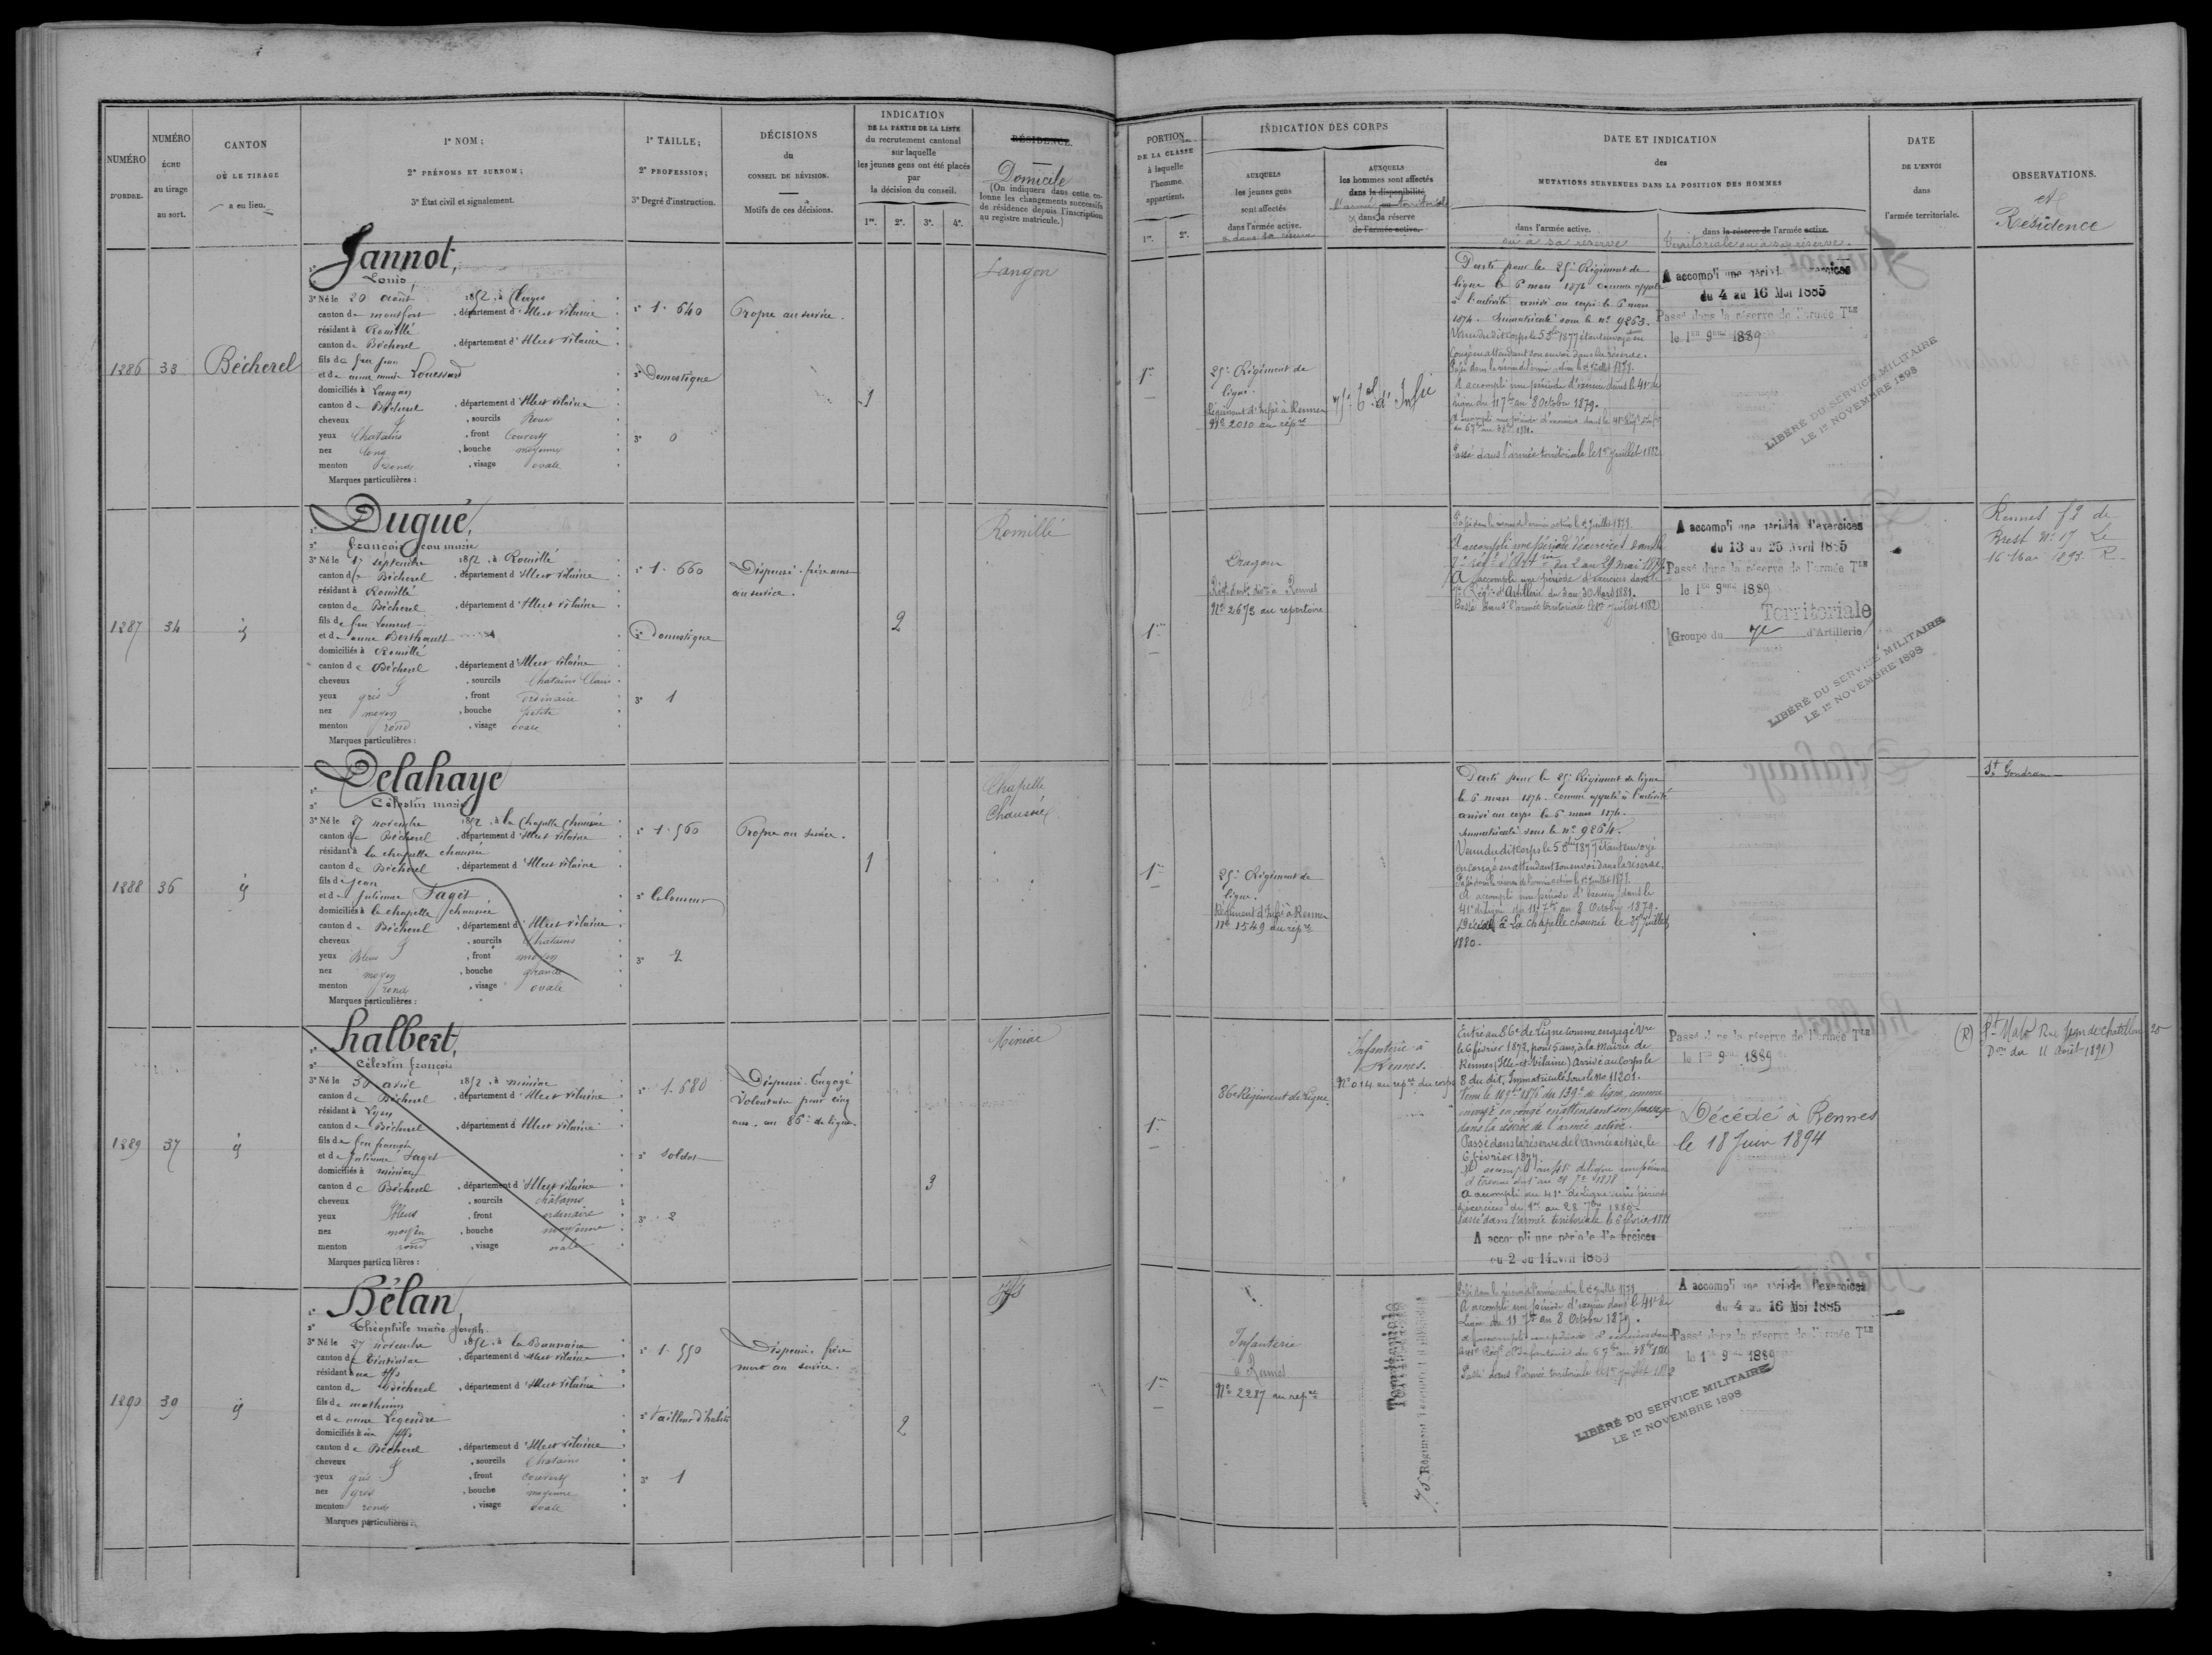 NUMÉRO
D'ORDRE.
NUMÉRO
ÉCHU
au tirage
au sort.
CANTON
OÙ LE TIRAGE
a eu lieu.
1° NOM ;
2° PRÉNOMS ET SURNOM ;
3° État civil et signalement.
1° TAILLE ;
2° PROFESSION ;
3° Degré d'instruction.
DÉCISIONS
du
CONSEIL DE RÉVISION.
Motifs de ces décisions.
INDICATION
DE LA PARTIE DE LA LISTE
du recrutement cantonal
sur laquelle
les jeunes gens ont été placés
par
la décision du conseil.
1re. 2e. 3e. 4e.
RÉSIDENCE.
Domicile
(On indiquera dans cette co-
lonne les changements successifs
de résidence depuis l'inscription
au registre matricule.)
1286 33 Bécherel
Jannot,
2° Louis
3° Né le 20 août 1852, à
canton de montfort, département d'Ille et Vilaine
résidant à Romillé
canton de Bécherel, département d'Ille et Vilaine
fils de feu jean
et de anne marie Louessard
domiciliés à Langan
canton de Bécherel, département d'Ille et Vilaine
cheveux, sourcils Roux
yeux Chatains, front Couvert
nez long, bouche moyenne
menton rond, visage ovale
Marques particulières :
1° 1.640
2° Domestique
3° 0
Propre au service.
1
Langan
1287 34 id
Dugué,
2° françois jean marie
3° Né le 17 septembre 1852, à Romillé
canton de Bécherel, département d'Ille et Vilaine
résidant à Romillé
canton de Bécherel, département d'Ille et Vilaine
fils de feu Laurent
et de anne Berthault
domiciliés à Romillé
canton de Bécherel, département d'Ille et Vilaine
cheveux, sourcils Chatains Clairs
yeux gris, front ordinaire
nez moyen, bouche petite
menton rond, visage ovale
Marques particulières :
1° 1.660
2° Domestique
3° 1
Dispensé. frère mort
au service.
2
Romillé
1288 36 id
Delahaye
2° Célestin marie
3° Né le 27 novembre 1852, à la Chapelle Chaussée
canton de Bécherel, département d'Ille et Vilaine
résidant à la chapelle chaussée
canton de Bécherel, département d'Ille et Vilaine
fils de jean
et de julienne Faget
domiciliés à la chapelle chaussée
canton de Bécherel, département d'Ille et Vilaine
cheveux, sourcils Chatains
yeux Bleus, front moyen
nez moyen, bouche grande
menton rond, visage ovale
Marques particulières :
1° 1.560
3° 2
Propre au service.
1
Chapelle
Chaussée
1889 37 id
halbert,
2° Célestin françois
3° Né le 30 avril 1852, à miniac
canton de Bécherel, département d'Ille et Vilaine
résidant à Lyon
canton de Bécherel, département d'Ille et Vilaine
fils de feu françois
et de julienne Faget
domiciliés à miniac
canton de Bécherel, département d'Ille et Vilaine
cheveux, sourcils châtains
yeux Bleus, front ordinaire
nez moyen, bouche moyenne
menton rond, visage ovale
Marques particulières :
1° 1.680
2° soldat
3° 2
Dispensé. Engagé
Volontaire pour cinq
ans. au 86e de ligne
3
Miniac
1290 39 id
Bélan,
2° Théophile marie Joseph
3° Né le 27 novembre 1852, à la Baussaine
canton de Tinténiac, département d'Ille et Vilaine
résidant aux Iffs
canton de Bécherel, département d'Ille et Vilaine
fils de mathurin
et de anne Legendre
domiciliés aux Iffs
canton de Bécherel, département d'Ille et Vilaine
cheveux, sourcils Chatains
yeux gris, front couvert
nez gros, bouche moyenne
menton rond, visage ovale
Marques particulières :
1° 1.550
2° Tailleur d'habits
3° 1
Dispensé. frère
mort au service.
2
Iffs
PORTION
DE LA CLASSE
à laquelle
l'homme
appartient.
1re. 2e.
INDICATION DES CORPS
AUXQUELS
les jeunes gens
sont affectés
dans l'armée active.
ou dans sa réserve
AUXQUELS
les hommes sont affectés
dans la disponibilité
l'armée territoriale
et dans la réserve
de l'armée active.
DATE ET INDICATION
des
MUTATIONS SURVENUES DANS LA POSITION DES HOMMES
dans l'armée active.
ou à sa réserve
dans la réserve de l'armée active.
territoriale ou à sa réserve.
DATE
DE L'ENVOI
dans
l'armée territoriale.
OBSERVATIONS.
et
Résidence
1re
25e Régiment de
ligne.
Régiment d'Infie à Rennes
No 2010 au répre
75e Tal d'Infie
Parti pour le 25e Régiment de
ligne le 6 mars 1874 comme appelé
à l'activité arrivé au corps le 6 mars
1874. Immatriculé sous le no 9263.
Venu du dit Corps le 5 1877 étant envoyé en
Congé en attendant son envoi dans la réserve.
Passé dans la réserve de l'armée active le 1er Juillet 1878.
A accompli une période d'exercices dans le 41e de
Ligne du 11 7bre au 8 Octobre 1879.
Passé dans l'armée territoriale le 1er juillet 1882
A accompli une période d'exercices
du 4 au 16 Mai 1885
Passé dans la réserve de l'armée Tle
le 1er 9bre 1889
LIBÉRÉ DU SERVICE MILITAIRE
LE 1er NOVEMBRE 1898
1re
Dragons
No 2673 au repertoire
Passé dans la réserve de l'armée active le 1er Juillet 1878.
A accompli une période d'exercices dans le
7e régt d'Artie du 2 au 29 mai 1879.
A accompli une période d'exercices dans le
7e Régt d'Artillerie du 3 au 30 Mars 1881.
Passé dans l'armée territoriale le 1er juillet 1882
A accompli une période d'exercices
du 13 au 25 Avril 1885
Passé dans la réserve de l'armée Tle
le 1er 9bre 1889
Territoriale
Groupe du 7e d'Artillerie
LIBÉRÉ DU SERVICE MILITAIRE
LE 1er NOVEMBRE 1898
Rennes fg de
Brest No 17 Le
16 Mai 1893. R
1re
25e Régiment de
ligne.
Régiment d'Infie à Rennes
No 1549 au répre
Parti pour le 25e Régiment de ligne
le 6 mars 1874. comme appelé à l'activité
arrivé au corps le 6 mars 1874.
Immatriculé sous le no 9264.
Venu du dit Corps le 5 1877 étant envoyé
en Congé en attendant son envoi dans la réserve.
Passé dans la réserve de l'armée active le 1er Juillet 1878.
A accompli une période d'exercices dans le
41e de Ligne du 11 7bre au 8 Octobre 1879.
Décédé à La Chapelle chaussée le 25 juillet
1880.
St Gondran
1re
86e Régiment de Ligne
Infanterie à
Rennes.
No 014 au repre du corps
Entré au 86e de Ligne comme engagé Vre
le 6 février 1872, pour 5 ans, à la Mairie de
Rennes (Ille-et-Vilaine) Arrivé au Corps le
8 du dit, Immatriculé sous le No 11201.
Venu le 1876 du 139e de ligne, comme
envoyé en congé en attendant son passage
dans la réserve de l'armée active.
Passé dans la réserve de l'armée active, le
6 février 1877.
A accompli au 41e de Ligne une période
d'exercices du 1er au 28 7bre 1880
Passé dans l'armée territoriale le 6 février 1881
A accompli une période d'exercices
du 2 au 14 avril 1883
Passé dans la réserve de l'armée Tle
le 1er 9bre 1889
Décédé à Rennes
le 18 Juin 1894
(R) St Malo Rue Jean de Chatillon 20
Don du 11 Août 1891)
1re
Infanterie
à Rennes
No 2287 au repre
Territoriale
75e Régiment Territorial d'Infanterie
Passé dans la réserve de l'armée active le 1er Juillet 1878.
A accompli une période d'exercices dans le 41e de
Ligne du 11 7bre au 8 Octobre 1879.
A accompli une période d'exercices dans
Passé dans l'armée territoriale le 1er juillet 1882
A accompli une période d'exercices
du 4 au 16 Mai 1885
Passé dans la réserve de l'armée Tle
le 1er 9bre 1889
LIBÉRÉ DU SERVICE MILITAIRE
LE 1er NOVEMBRE 1898